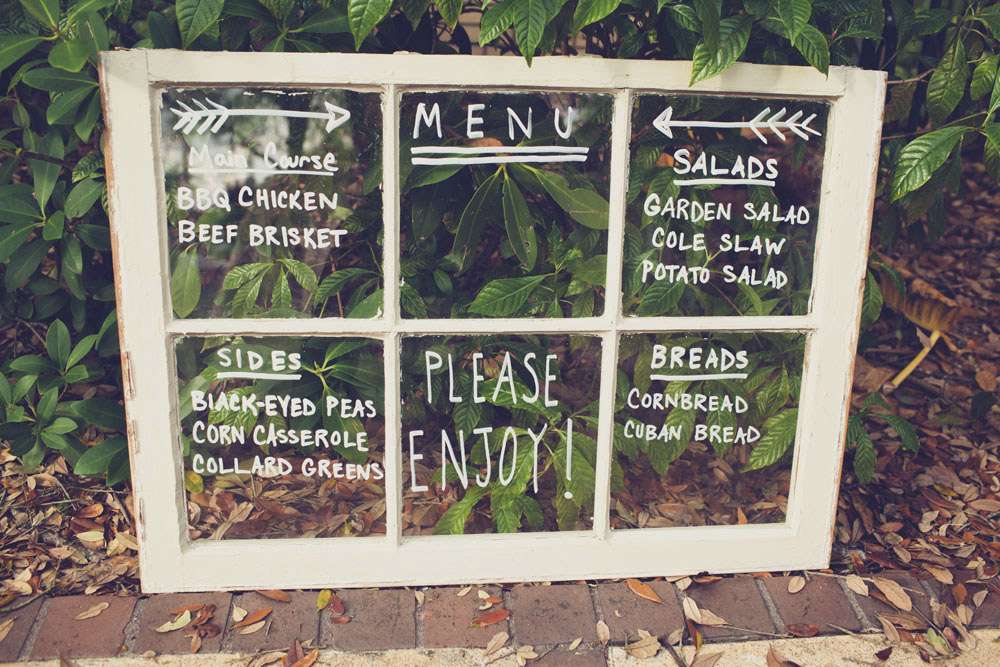 MENU
Main Course
BBQ CHICKEN
BEEF BRISKET
SALADS
GARDEN SALAD
COLE SLAW
POTATO SALAD
SIDES
BLACK-EYED PEAS
CORN CASSEROLE
COLLARD GREENS
PLEASE
ENJOY!
BREADS
CORNBREAD
CUBAN BREAD